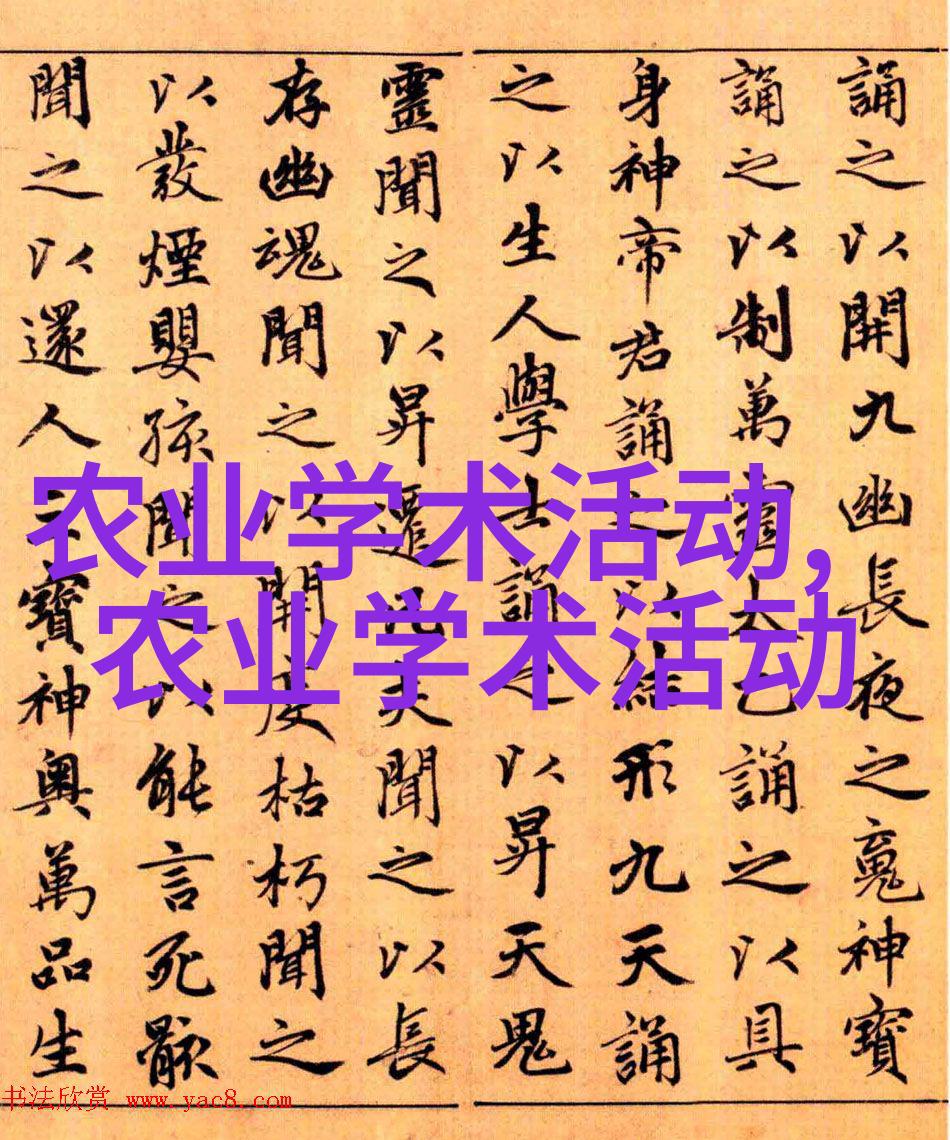 誦之以開九幽長夜之䰟神寶
誦之以制萬靈太乙誦之以具
身神帝君誦之以結形九天誦
之以生人學士誦之以昇天鬼
靈聞之以昇遷凡夫聞之以長
存幽魂聞之以開度枯朽聞之
以發煙嬰孩聞之以能言死骸
聞之以還人三寶神奧萬品生
农业学术活动,
农业学术活动
书法欣赏 www.yac8.com